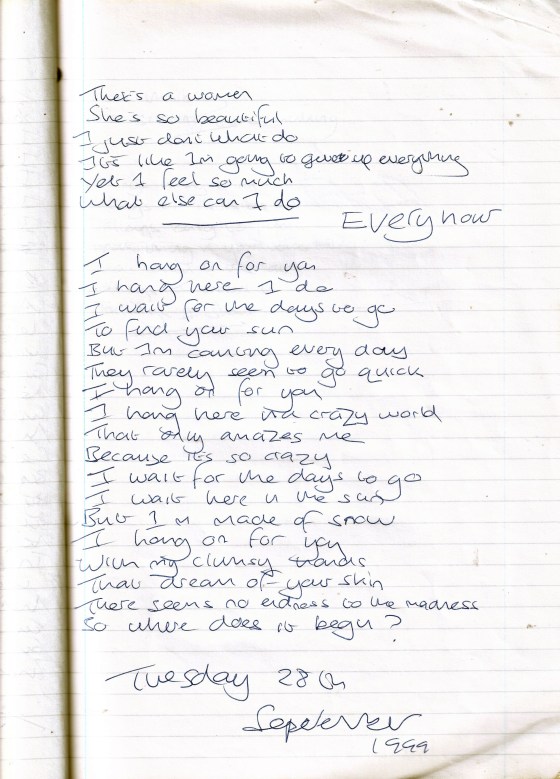 There's a women
She's so beautiful
I just dont what do
It's like I'm going to give up everything
Yet I feel so much
What else can I do
Everyhow
I hang on for you
I hang here I do
I wait for the days to go
To find your sun
But I'm counting every day
They rarely seem to go quick
I hang on for you
I hang here in a crazy world
That only amazes me
Because it's so crazy
I wait for the days to go
I wait here in the sun
But I'm made of snow
I hang on for you
With my clumsy hands
That dream of your skin
There seems no endness to the madness
So where does it begin?
Tuesday 28th
September
1999